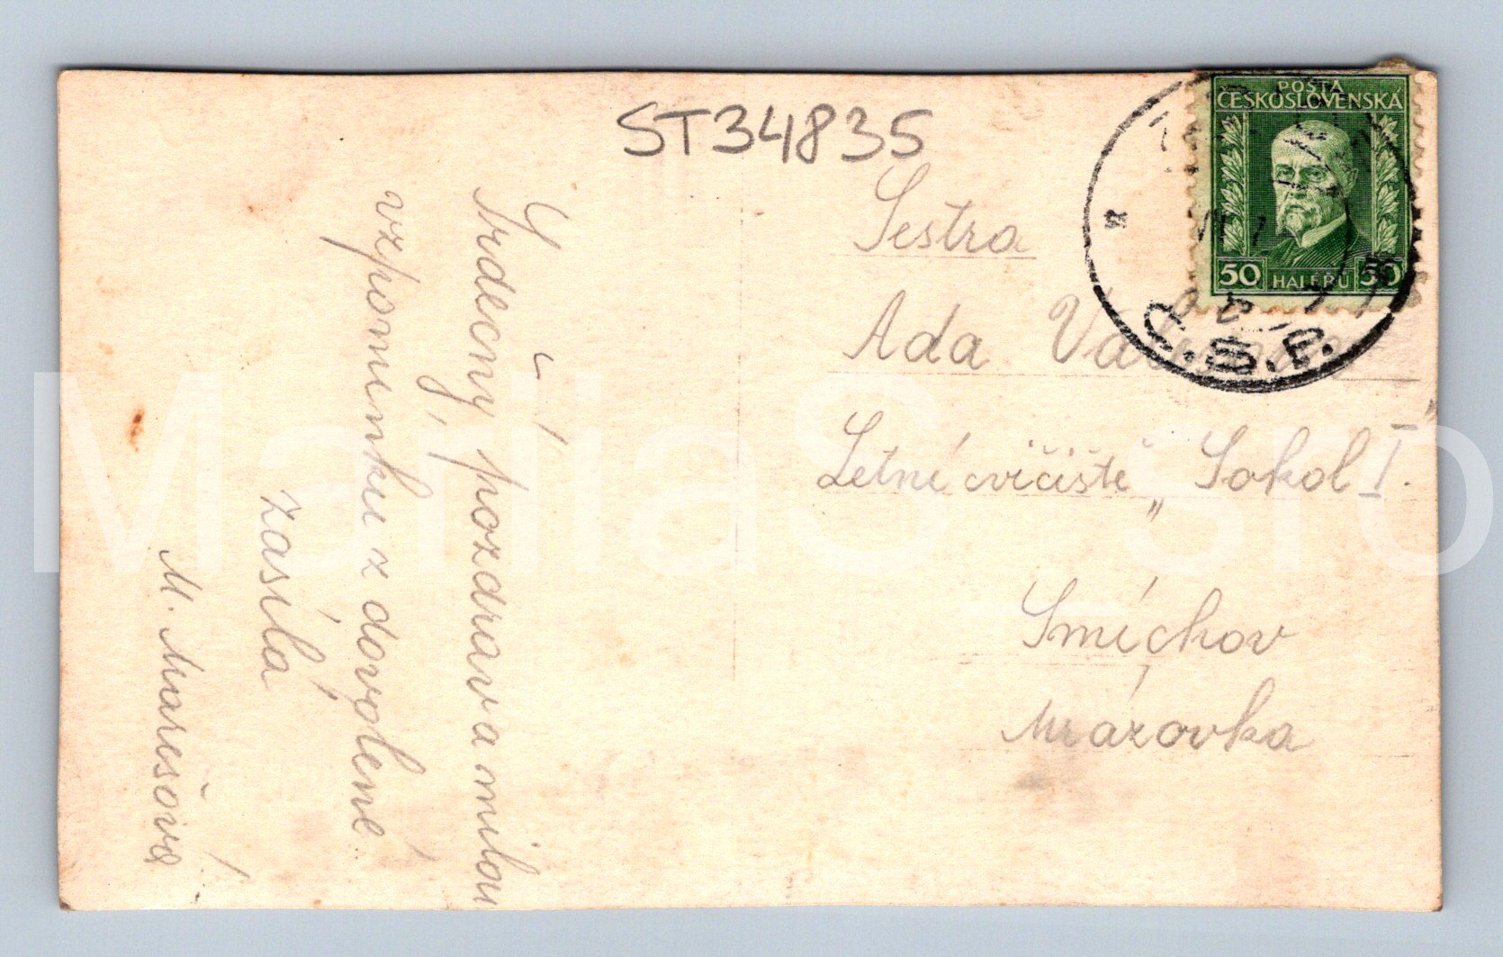 ST34835
POŠTA
ČESKOSLOVENSKÁ
50 HALÉŘŮ 50
Č.S.P.
Srdečný pozdrav a milou
vzpomínku z dovolené
zasílá
M. Marešová
Sestra
Ada
Letní cvičiště „Sokol I.
Smíchov
Mrázovka
ManiaS - sro